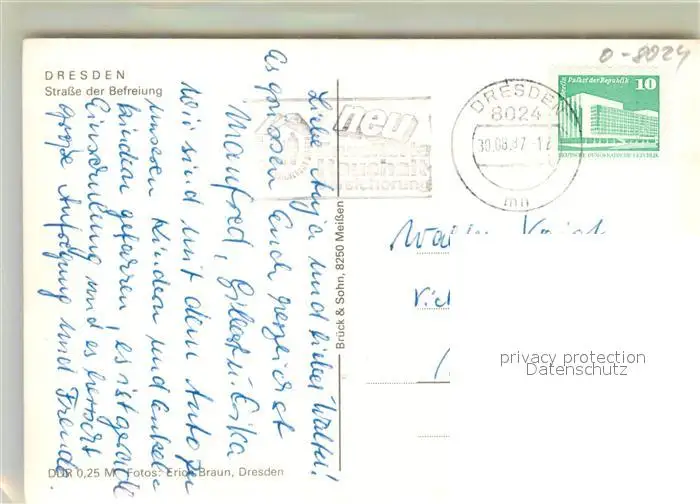 O-8024
DRESDEN
Straße der Befreiung
neu
sicherung
DRESDEN
8024
30.08.87-12
mn
Berlin Palast der Republik
10
DEUTSCHE DEMOKRATISCHE REPUBLIK
Liebe Anja und lieber Walter!
Es grüssen Euch herzlichst
Manfred, Gisela u. Erika
Wir sind mit dem Auto zu
unseren Kindern und Enkel-
kindern gefahren, es ist gerade
Einschulung und es herrscht
große Aufregung und Freude.
Brück & Sohn, 8250 Meißen
privacy protection
Datenschutz
DDR 0,25 M Fotos: Erich Braun, Dresden